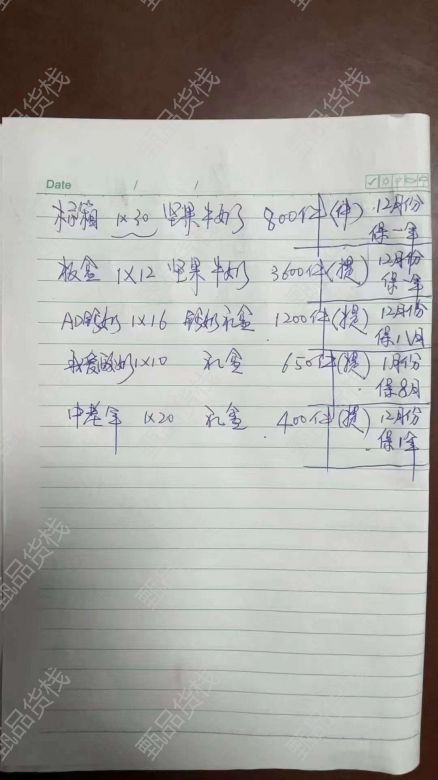 Date / /
标箱 1×30 坚果牛奶 800件 (件) 12月份
保一年
板盒 1×12 坚果牛奶 3600件 (提) 12月份
保一年
AD钙奶 1×16 钙奶礼盒 1200件 (提) 12月份
保1八月
我爱酸奶 1×10 礼盒 650件 (提) 1月份
保8月
中老年 1×20 礼盒 400件 (提) 12月份
保1年
甄品货栈